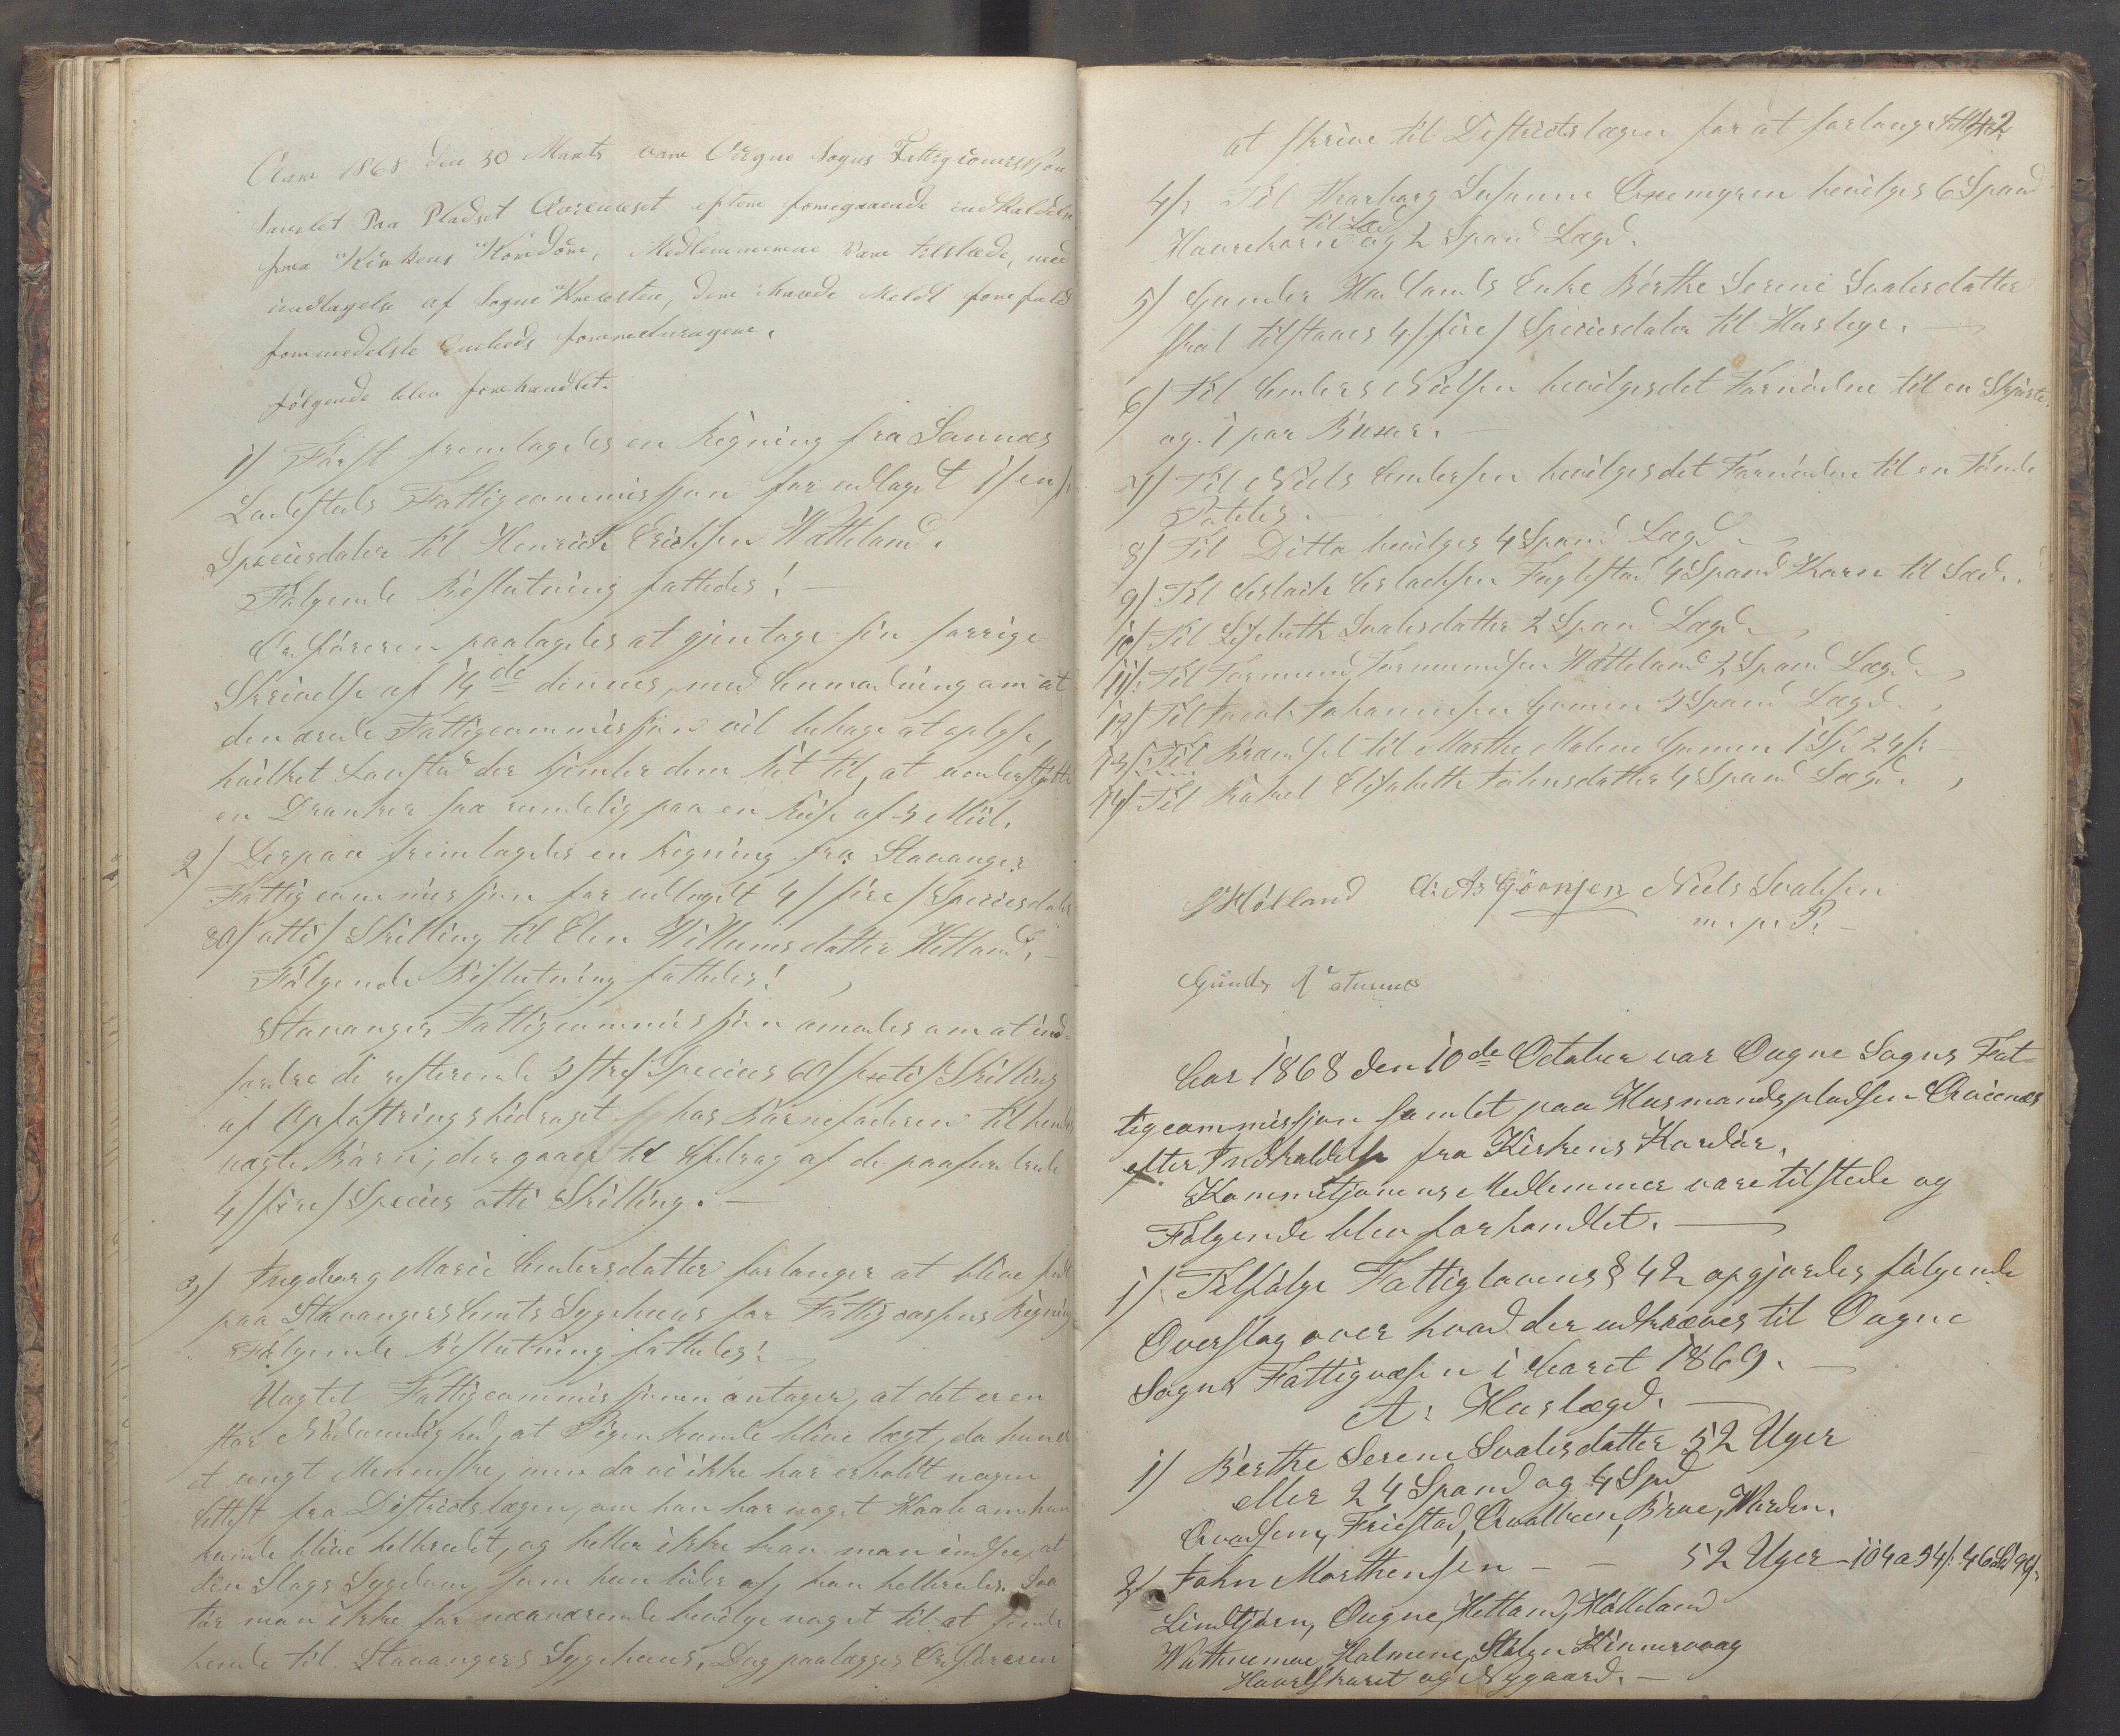 Aar 1868 den 30 Marts var Augne Sogns Fattigcommisjon
samlet Paa Pladset efter foregaaende indkaldelse
fra Kirkens Kordør, Medlemmerne var tilstæde, med
undtagelse af Sogne Presten, der havde Meldt forefald
formedelste Embeds forretningene.
følgende blev forhandlet.
1/ Først fremlagdes en Regning fra Sannæs
Ladesteds Fattigcommissjon for udlagt 1/en/
Speciesdaler til Henrich Erichsen Watteland.
Følgende Beslutning fattedes!
Ordføreren paalagdes at gjentage sin forrige
Skrivelse af 14de dennes, med Anmodning om at
den ærede Fattigcommissjon vil behage at oplyse,
hvilket Lovsted der hjemler dem Ret til, at understøtte
en Dranker saa rundelig paa en Reise af 3 Miil.
2/ Derpaa fremlagdes en Regning fra Stavanger
Fattigcommissjon for udlagt 4/fire/ Speciesdaler
80/otti/ Skilling til Elen Willumsdatter Hetland.
Følgende Beslutning fattedes!
Stavanger Fattigcommissjon anmodes om at ind-
fordre de resterende 3/tre/ Species 60/sexti/ Skilling
af Opfostringsbidraget hos Barnefaderen til hendes
uægte Barn; der gaaer til Afdrag af de paaførte
4/fire/ Species otti Skilling.
3/ Ingeborg Marie Andersdatter forlanger at blive
paa Stavangers Amts Sygehuus for Fattigcassens Regning
Følgende Beslutning fattedes!
Uagtet Fattigcommissjonen antager, at det er en
stor Nødvendighed, at Pigen kunde blive lægt, da hun er
et ungt Menneske, men da vi ikke har erholdt nogen
Attest fra Districtslægen, om han har noget Haab om hun
kunde blive helbredet, og heller ikke kan man indsee, at
den Slags Sygdom, som hun lider af, kan helbredes. Saa
tør man ikke for nærværende bevilge noget til at sende
hende til Stavangers Sygehuus. Dog paalægges Ordføreren
at skrive til Districtslægen for at forlange Attest. 2
4/: Til Thorborg Susanne Oxemyren bevilges 6 Spand
til Sæd
Havrekorn og 2 Spand Lægd.
5/ Gunder Hovlands Enke Berthe Serine Svalesdatter
skal tilstaaes 4/fire/ Speciesdaler til Husleye.
6/ Til Anders Nielsen bevilges det Fornødne til en Skjorte
og 1 par Buxer.
7/ Til Niels Andersen bevilges det Fornødne til en Tønde
Poteter.
8/ Til Ditto bevilges 4 Spand Lægd
9/ Til Aslach Aslachsen Fuglestad 4 Spand Korn til Sæd.
10/ Til Lisebeth Svalesdatter 2 Spand Lægd.
11/: Til Tormund Tormundsen Watteland 2 Spand Lægd
12/ Til Jacob Johannesen Gomen 3 Spand Lægd.
13/: Til Brændsel til Marthe Malene Gomen 1 Sp. 24 s:
14/ Til Rakel Elisabeth Johnsdatter 4 Spand Lægd.
Hølland A: A: Gjørnsen Niels Svalesen
m. p. P.
Aar 1868 den 10de October var Ougne Sogns Fat-
tigcommissjon samlet paa Husmandspladsen
efter Indkaldelse fra Kirkens Kordør,
Kommisjonens Medlemmer vare tilstede og
Følgende blev forhandlet.
1/ Tilfølge Fattiglovens § 42 opgjordes følgende
Overslag over hvad der udkræves til Ougne
Sogns Fattigvæsen i Aaret 1869.
A: Huslægd.
1/ Berthe Serine Svalesdatter 52 Uger
eller 24 Spand og 4 Spd
Friestad, Brue, Warden.
2/ John Morthensen - - 52 Uger
Lindtjørn, Ougne, Hetland, Hølleland
Watnemoe, Holmene, Kinnervaag
og Nygaard.